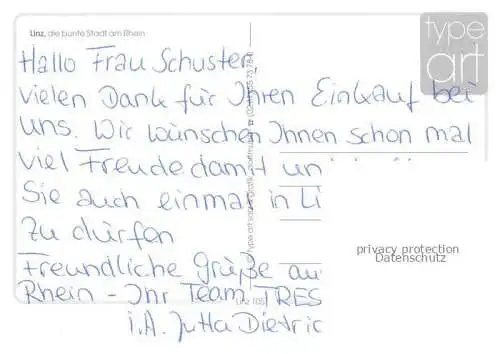 Linz, die bunte Stadt am Rhein
type
art
Hallo Frau Schuster
vielen Dank für Ihren Einkauf bei
uns. Wir wünschen Ihnen schon mal
viel Freude damit un
Sie auch einmal in Li
zu dürfen
privacy protection
Datenschutz
Freundliche Grüße au
Rhein - Ihr Team TRES
Linz 105
i.A. Jutta Dietric